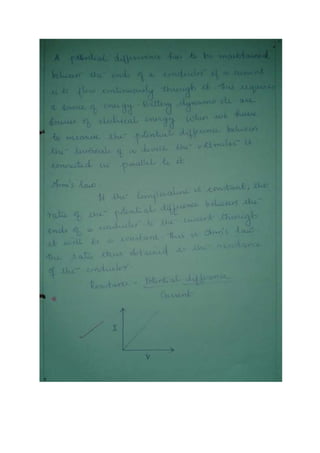 A potential difference has to be maintained
between the ends of a conductor if a current
is to flow continuously through it. This requires
a source of energy. Battery dynamo etc are
sources of electrical energy. When we have
to measure the potential difference between
the terminals of a device the voltmeter is
connected in parallel to it
Ohm's law
If the temperature is constant, the
ratio of the potential difference between the
ends of a conductor to the current through
it will be a constant. This is Ohm's law.
The ratio thus obtained is the resistance
of the conductor.
Resistance = Potential difference
Current
I
V